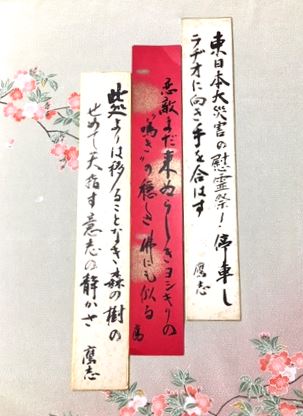 東日本大災害の慰霊祭！停車し
ラヂオに向き手を合はす
鷹志
恋敵まだ来ぬらしきヨシキリの
"鳴き"の穏しき佛にも似る
此処よりは移ることなき森の樹の
せめて天指す意志の静かさ
鷹志